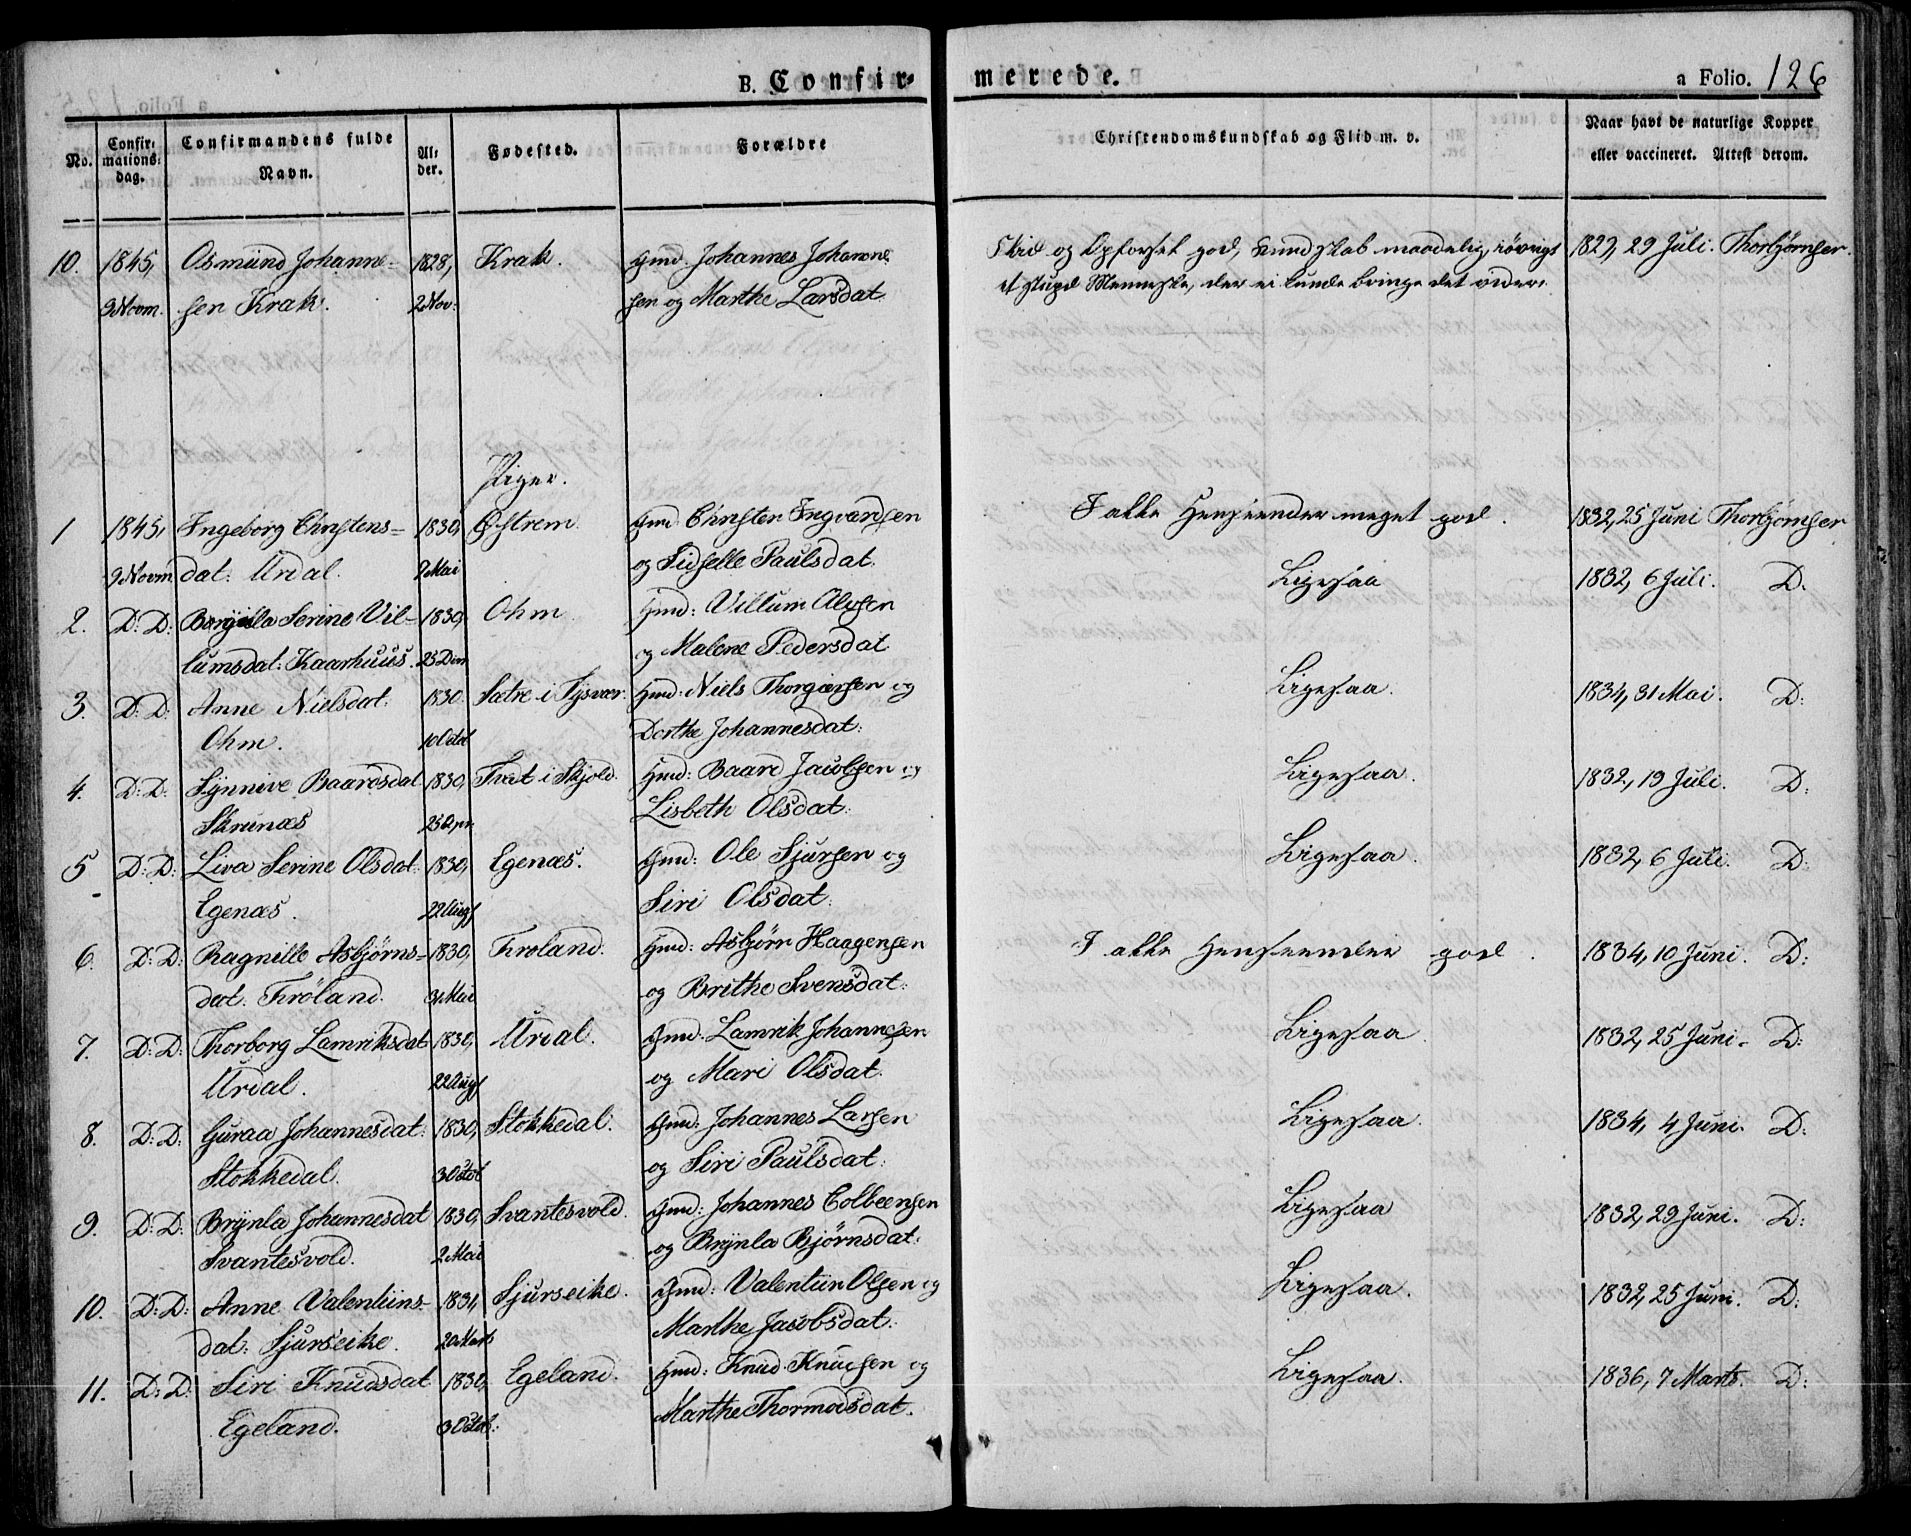 B. Confir-
merede.
a Folio. 126
No.
Confir-
mations-
dag.
Confirmandens fulde
Navn.
Al-
der.
Fødested.
Forældre
Christendomskundskab og Flid m. v.
Naar havt de naturlige Kopper
eller vaccineret. Attest derom.
10. 1845, Osmund Johanne- 1828, Krak. Gmd. Johannes Johanne Flid og Opførsel god, Kundskab maadelig, iøvrigt 1829, 29 Juli. Thorbjørnsen.
9 Novm. sen Krak. 2 Nov: sen og Marthe Larsdat. et stupid Menneske, der ei kunde bringe det videre
Piger.
1 1845, Ingeborg Christens- 1830, Østrem. Gmd. Christen Ingvardsen I alle Henseender meget god. 1832, 25 Juni Thorbjørnsen
9 Novm dat: Urdal. 9 Mai og Sidselle Paulsdat.
2. D: D: Serine Vil- 1830, Ohm. Gmd: Villum Ligesaa 1832, 6 Juli. D.
lumsdat: Kaarhuus. og Malene Pedersdat
3. D: D: Anne Nielsdat. 1830. Sætre i Tysvær. Gmd: Niels Thorgiersen og Ligesaa. 1834, 31 Mai. D:
Ohm. Dorthe Johannesdat:
4. D: D. Synnive Baardsdat 1830, Tvet i Skjold. Gmd: Baard Jacobsen og Ligesaa. 1832, 19 Juli. D:
Skrunæs Lisbeth Olsdat:
5 D: D: Liva Serine Olsdat: 1830, Egenæs. Gmd: Ole Sjursen og Ligesaa. 1832, 6 Juli. D:
Egenæs. 22 Aug Siri Olsdat:
6. D: D: Ragnille Asbjørns- 1830, Frøland. Gmd: Asbjørn Haagensen I alle Henseender god. 1834, 10 Juni. D:
dat: Frøland. 31 Mai og Brithe Svensdat:
7. D: D: Thorborg Lamriksdat 1830, Urdal. Gmd: Lamrik Johannesen Ligesaa. 1832, 25 Juni. D:
Urdal. 22 Aug og Mari Olsdat.
8. D: D: Guraa Johannesdat: 1830, Stokkedal. Gmd: Johannes Larsen Ligesaa. 1834, 4 Juni. D:
Stokkedal. 3 Octob og Siri Paulsdat:
9. D: D: Brynla Johannesdat 1830, Svantesvold. Gmd: Johannes Colbeensen Ligesaa 1832, 29 Juni. D:
Svantesvold. 2 Mai og Brynla Bjørnsdat.
10. D: D: Anne Valentiins- 1831, Sjurseike. Gmd: Valentiin Olsen og Ligesaa. 1832, 25 Juni. D:
dat: Sjurseike. 20 Marts Marthe Jacobsdat:
11. D: D: Siri Knudsdat 1830, Egeland. Gmd: Knud Knudsen og Ligesaa. 1836, 7 Marts. D:
Egeland. 3 Octob: Marthe Thormodsdat.